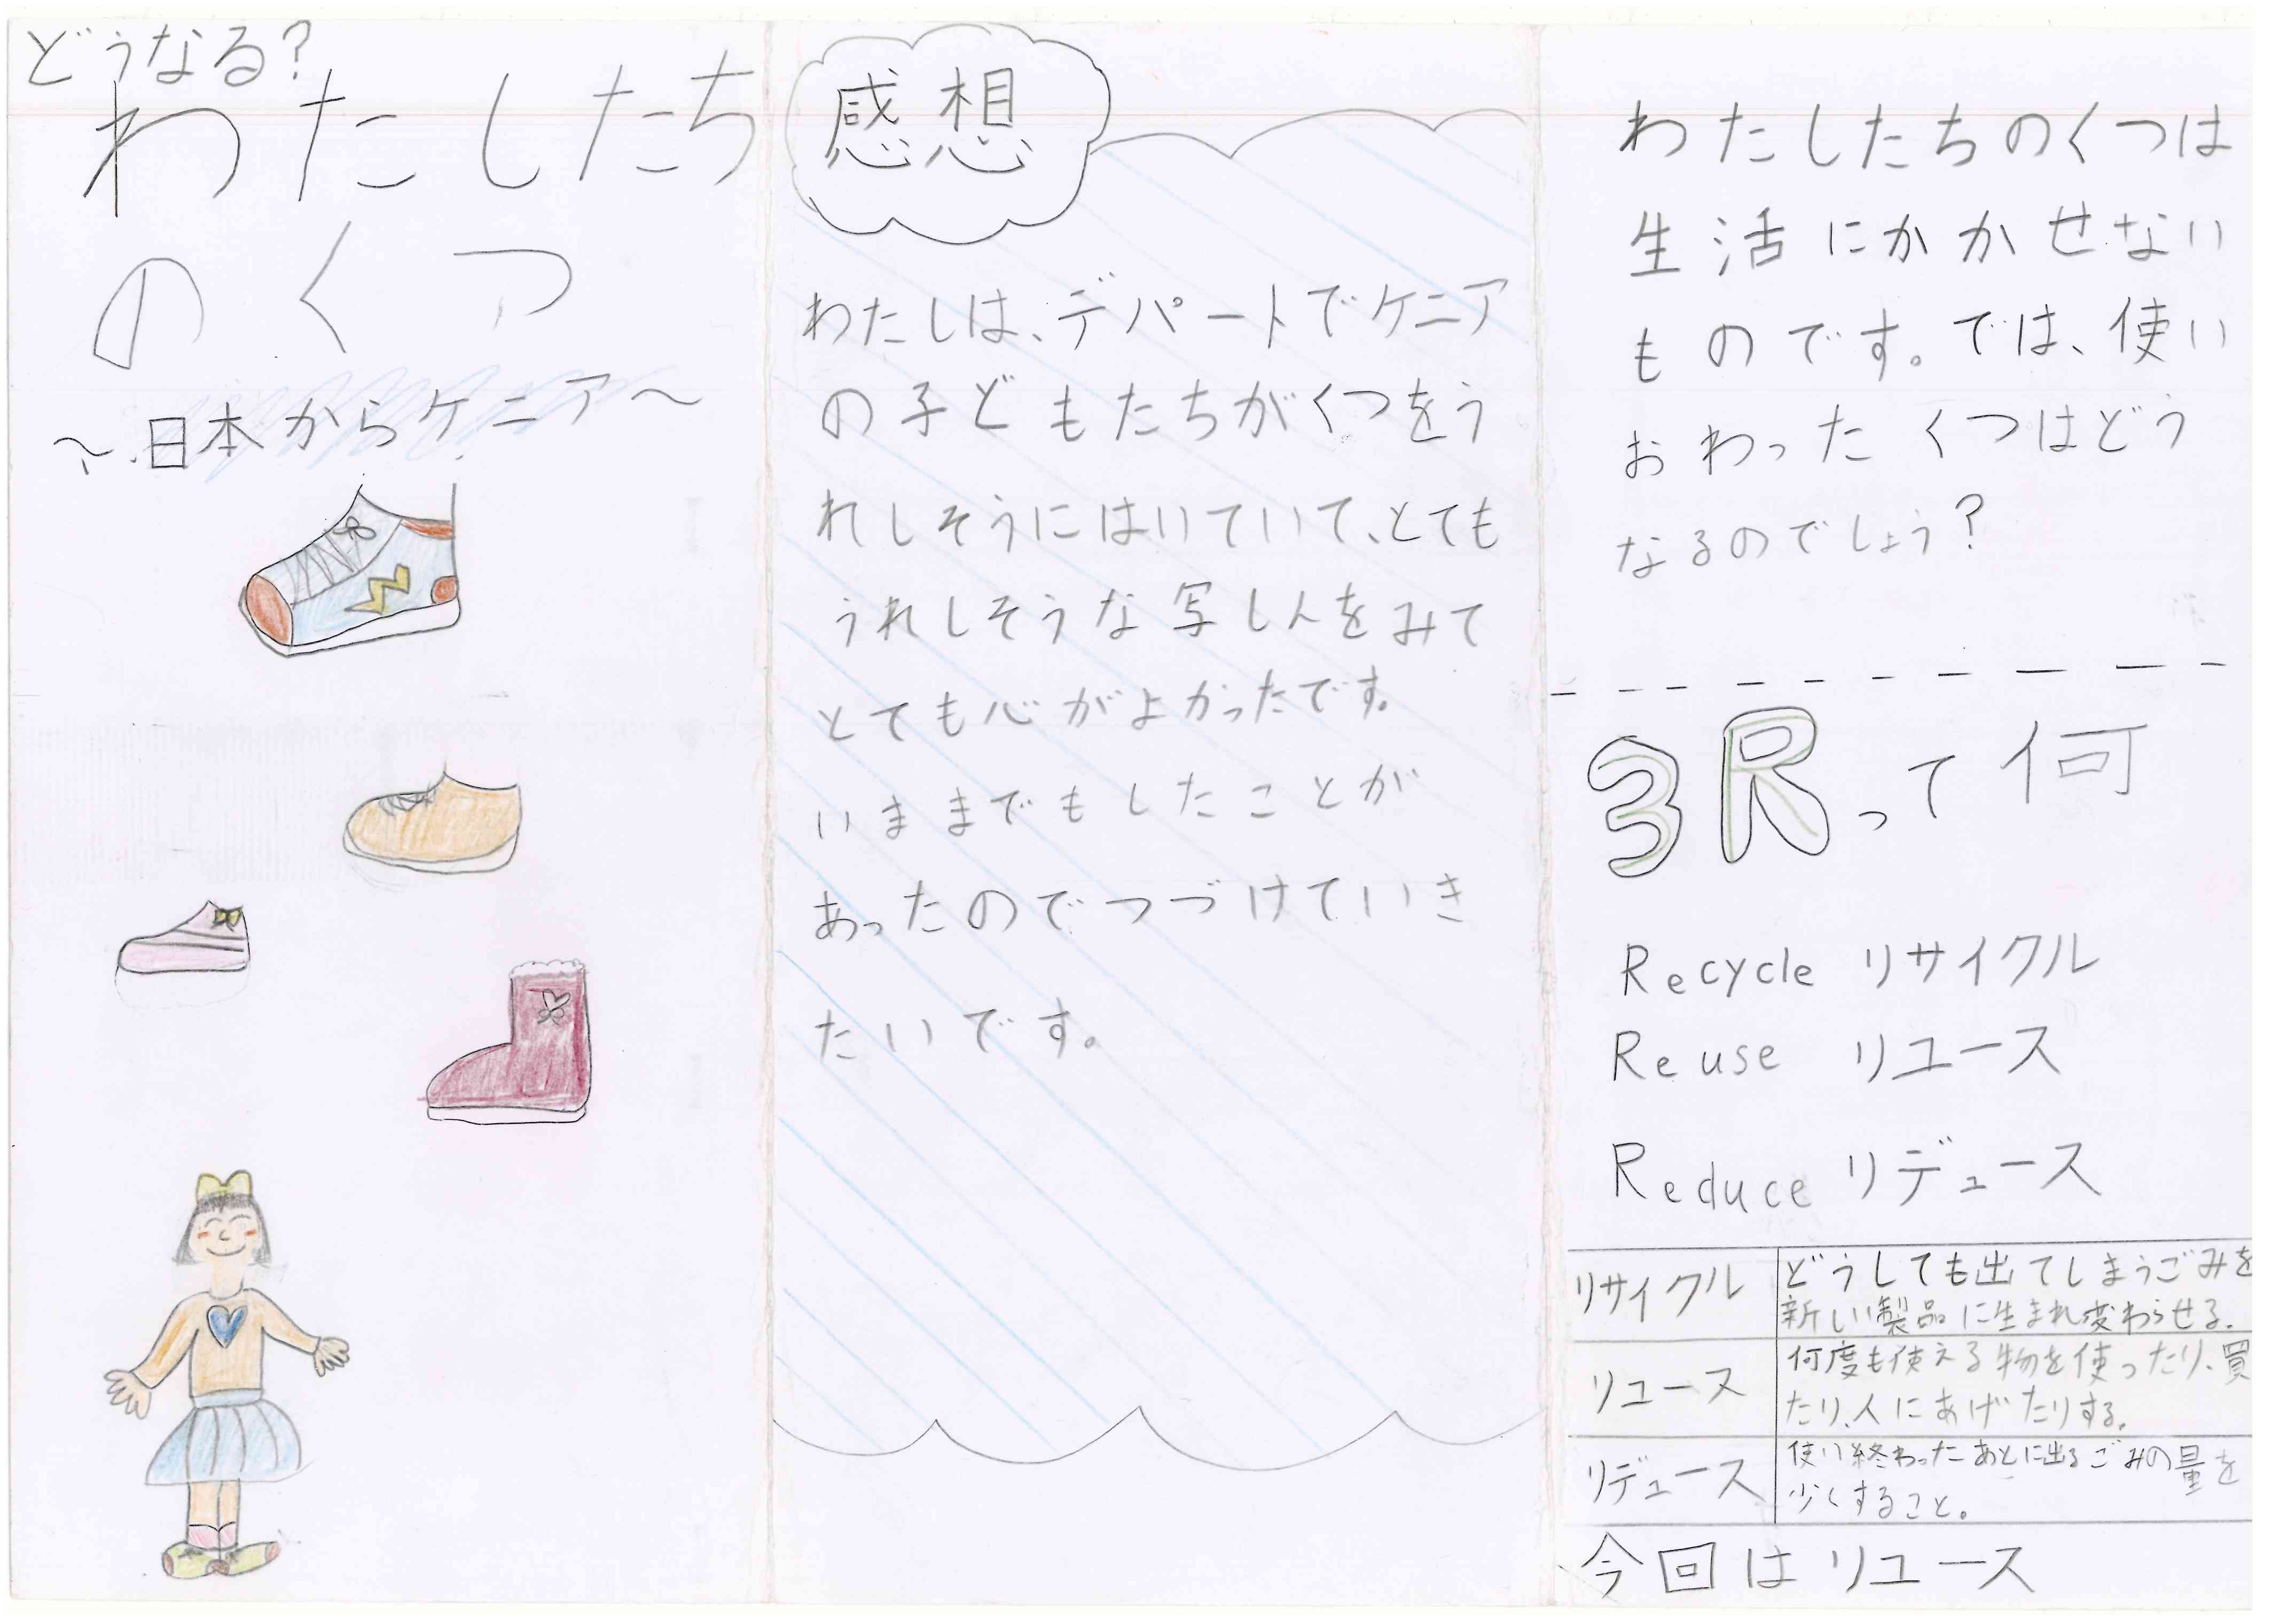 どうなる？
わたしたち
のくつ
〜日本からケニア〜
感想
わたしは、デパートでケニア
の子どもたちがくつをう
れしそうにはいていて、とても
うれしそうな写しんをみて
とても心がよかったです。
いままでもしたことが
あったのでつづけていき
たいです。
わたしたちのくつは
生活にかかせない
ものです。では、使い
おわったくつはどう
なるのでしょう？
3Rって何
Recycle リサイクル
Reuse リユース
Reduce リデュース
リサイクル
どうしても出てしまうごみを
新しい製品に生まれ変わらせる。
リユース
何度も使える物を使ったり、買
たり、人にあげたりする。
リデュース
使い終わったあとに出るごみの量を
少くすること。
今回はリユース